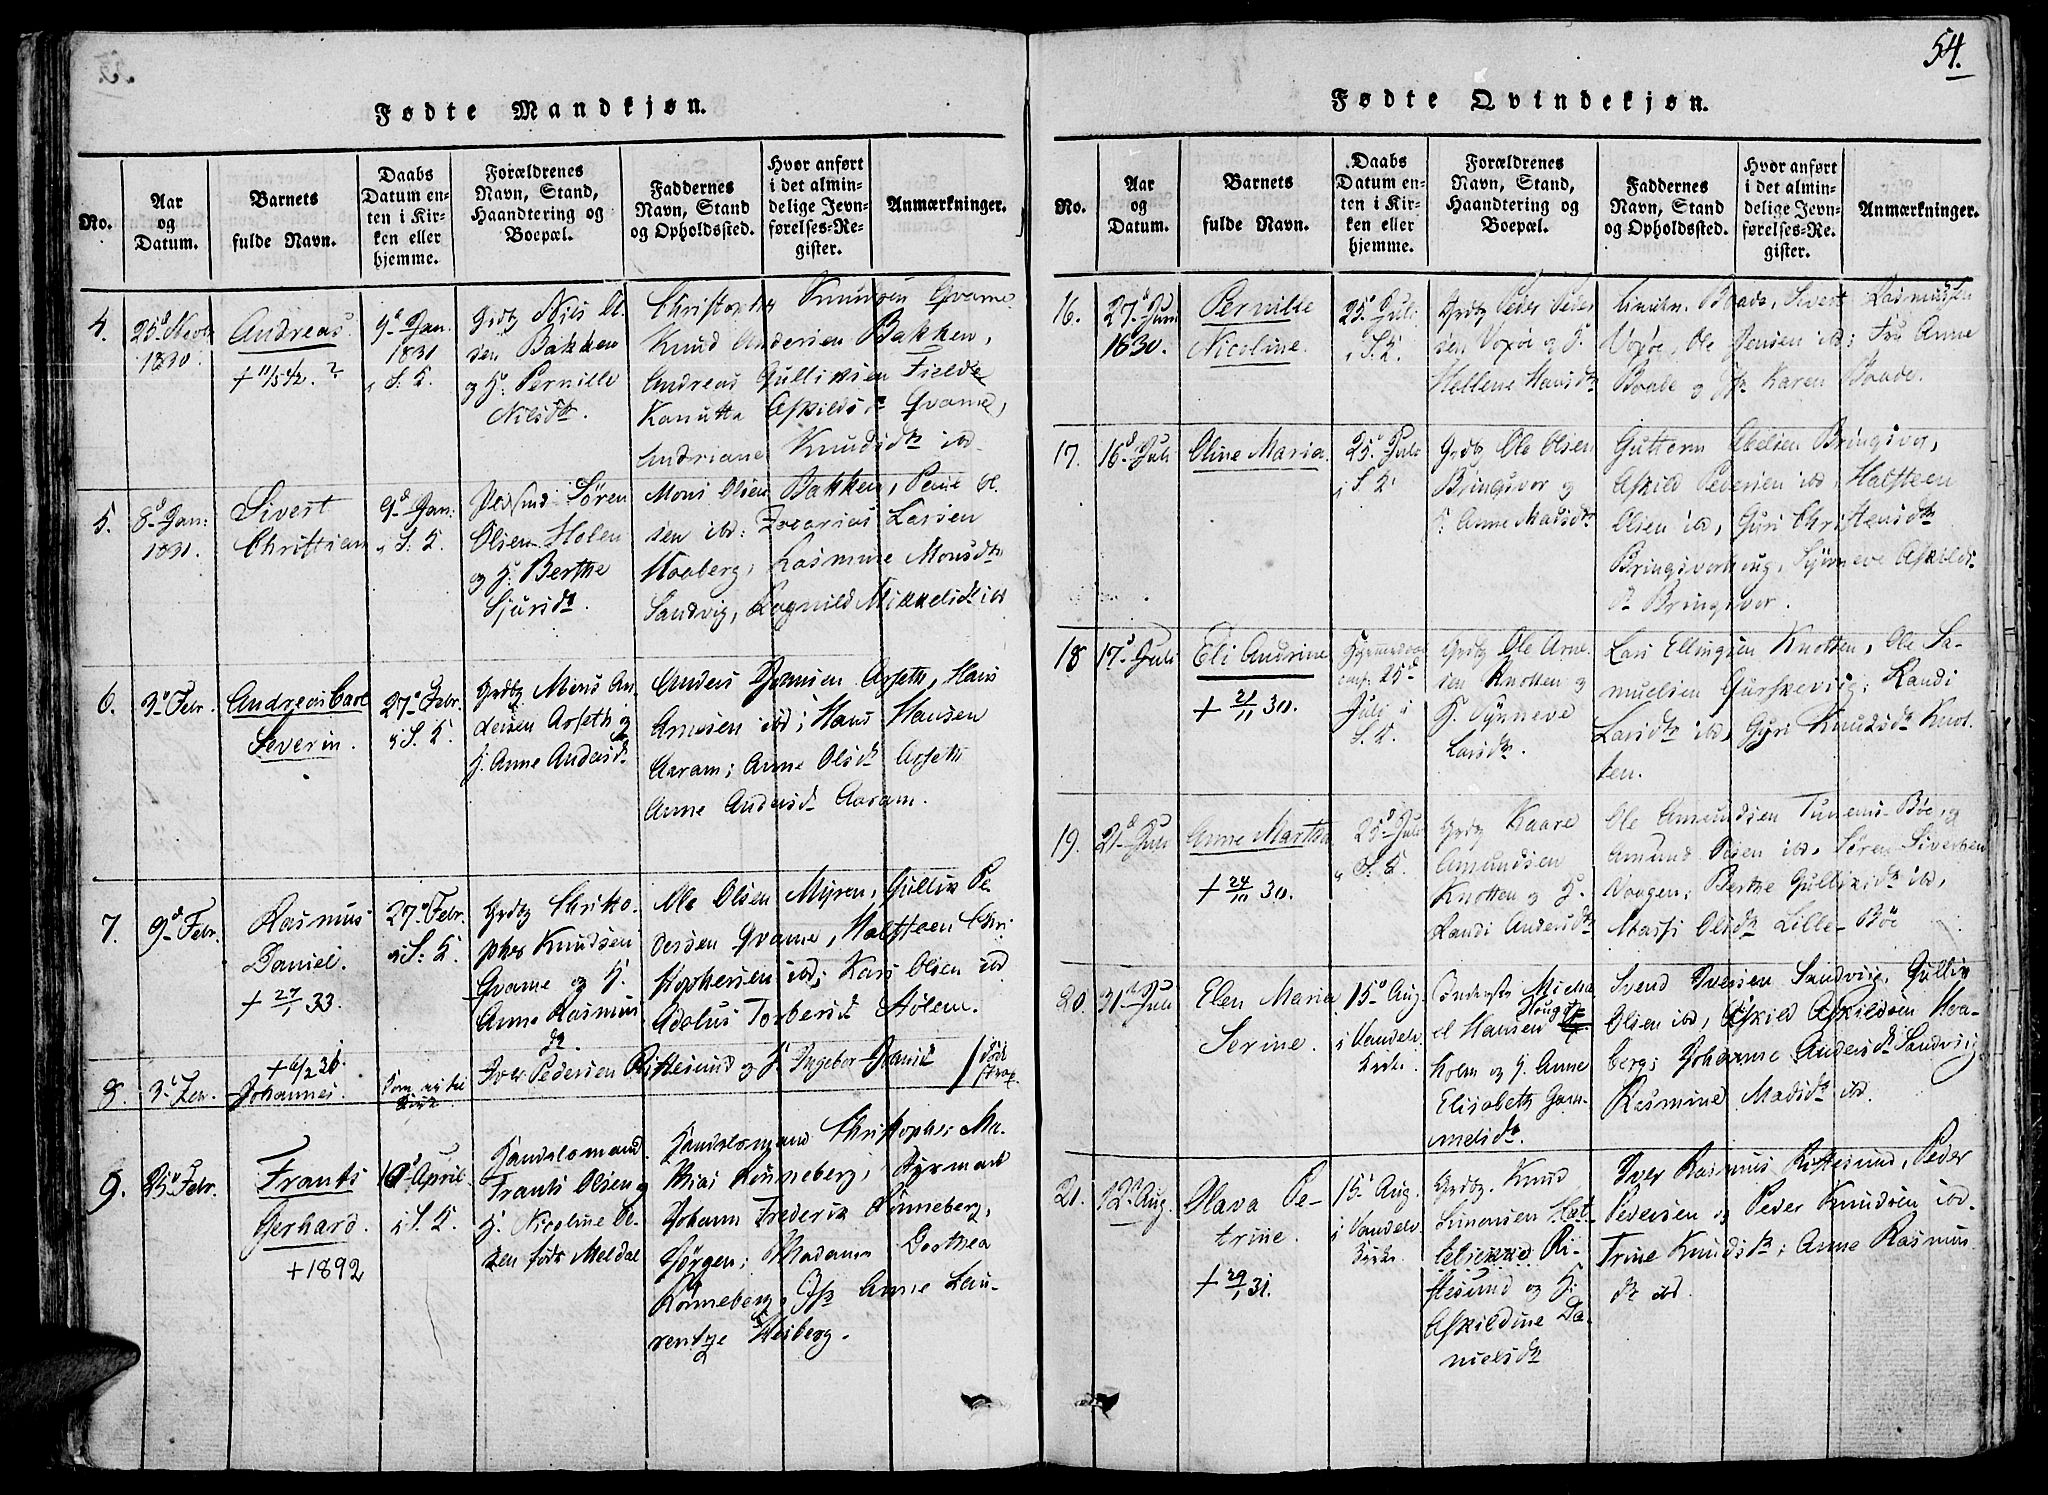 54.
Fødte Mandkjøn.
No.
Aar
og
Datum.
Barnets
fulde Navn.
Daabs
Datum en-
ten i Kir-
ken eller
hjemme.
Forældrenes
Navn, Stand,
Haandtering og
Boepæl.
Faddernes
Navn, Stand
og Opholdssted.
Hvor anført
i det almin-
delige Jevn-
førelses-Re-
gister.
Anmærkninger.
4.
25d Novbr
1830.
Andreas.
+ 11/5 42. ?
9d Jan.
1831
i S. K.
Grdbr Nils Ol-
sen Bakken
og H. Pernille
Nilsdtr.
Christopher Knudsen Qvame
Knud Andersen Bakken,
Andreas Gulliksen Fielde
Kanutta Askildsdr Qvame,
Andriane Knudsdtr ibd
5.
8d Jan:
1831.
Sivert
Christian
9d Jan:
i S. K.
Søren
Olsen Holen
og H. Berthe
Sjursdtr.
Mons Olsen Bakken, Peme Ol-
sen ibd: Zacarias Lassen
Moaberg, Rasmine Monsdtr
Sandvig, Ragnild Mikkelsdtr ibd
6.
3d Febr.
Andreas Carl
Severin.
27d Febr.
i S. K.
Grdbr Mons An-
dersen Asseth og
H. Anne Andersdr
Anders Jensen Asseth, Hans
Arnesen ibd; Hans Hansen
Aaram; Anne Olsdr Asseth
Anne Andersdr Aaram.
7.
9d Febr.
Rasmus
Daniel.
+ 27/1 33.
27d Febr.
i S. K.
Grdbr Christo-
pher Knudsen
Qvame og H.
Anne Rasmus
dr.
Ole Olsen Myren, Gullik Pe-
dersen Qvame, Halsteen Chri-
stophersen ibd; Kari Olsen ibd
Adelus Torbersdr Holene.
8.
3d Febr.
+ 6/2 31
Johannes.
Iver Pedersen Ristesund og H. Ingebor Danielsdr
9.
25d Febr.
Frants
Gerhard.
+ 1892
10d April
i S. K.
Handelsmand
Frants Olsen og
H. Nicoline Ol-
sen født Meldal
Handelsmand Christopher Ma-
thias Rønneberg; Styrmand
Johann Frederik Rønneberg,
Jørgen; Madame Dorthea
Rønneberg, Jfr Anne Lau-
rentze Heiberg.
Fødte Qvindekjøn.
No.
Aar
og
Datum.
Barnets
fulde Navn.
Daabs
Datum en-
ten i Kir-
ken eller
hjemme.
Forældrenes
Navn, Stand,
Haandtering og
Boepæl.
Faddernes
Navn, Stand
og Opholdssted.
Hvor anført
i det almin-
delige Jevn-
førelses-Re-
gister.
Anmærkninger.
16.
27d Juni
1830.
Pernille
Nicoline.
25d Juli
i S. K.
Grdbr Peder Peder
sen Voxøe og H.
Hellene Hansdtr
Baade, Sivert Rasmussen
Voxøe, Ole Jensen ibd; Fru Anne
Baade og Jfr Karen Baade.
17.
16d Juli
Oline Maria.
25d Juli
i S. K.
Grdbr Ole Olsen
Bringsvor og
H. Anne Madsdtr
Guttorm Abelsen Bringsvor,
Askild Pedersen ibd, Halsteen
Olsen ibd, Guri Christensdtr
Bringsvorhaug, Synneve Askilds-
dr Bringsvor.
18
17d Juli
Eli Andrine
+ 21/11 30.
25d
Juli i
S. K.
Grdbr Ole Arne-
sen Knotten og
H. Synneve
Larsdtr.
Lars Ellingsen Knotten, Ole Sa-
muelsen Gurskevig; Randi
Larsdtr ibd, Guri Knudsdtr Knot-
ten.
19.
21d Juli
Anne Martha
+ 24/10 30.
25d Juli
i S. K.
Grdbr Kaare
Amundsen
Knotten og H.
Randi Andersdtr
Ole Amundsen Tunems-Bøe, og
Amund Olsen ibd, Søren Sivertsen
Vaagen; Berthe Gulliksdtr ibd,
Massi Olsdtr Lille-Bøe
20.
31d Juli
Elen Maria
Serine.
15d Aug.
i Vandelv
Kirke
Micha-
el Hansen Houg-
holm og H. Anne
Elisabeth Gam-
melsdtr.
Svend Iversen Sandvig, Gullik
Olsen ibd, Askild Askildsen Moa-
berg; Johanne Andersdtr Sandvig
Rasmine Madsdtr ibd.
21.
12d Aug.
Olava Pe-
trine.
+ 29/1 31.
15d Aug.
i Vandelv
Kirke.
Grdbr. Knud
Simonsen Hat-
Ri-
stesund og H.
Askildine Da-
nielsdtr
Iver Rasmus. Ristesund, Peder
Pedersen og Peder Knudsen ibd.
Trine Knudsdtr; Anne Rasmus-
dr ibd.